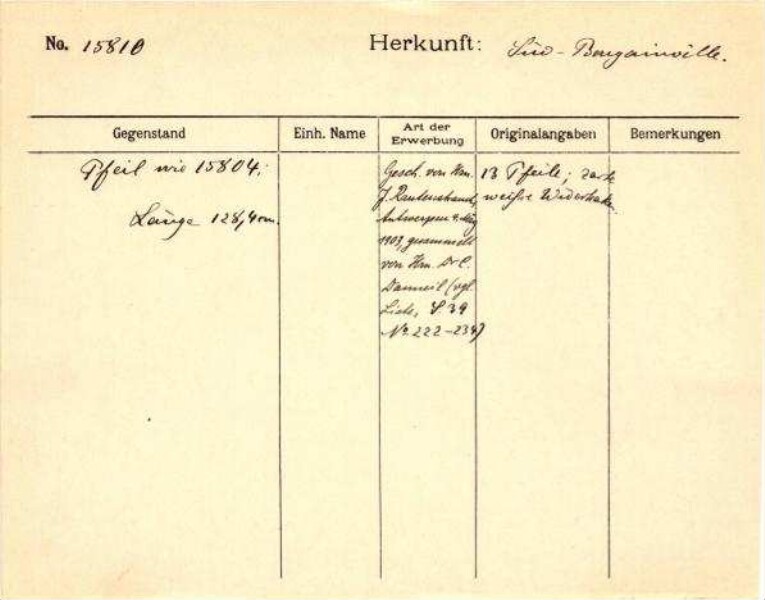 No. 15810
Herkunft: Süd-Bougainville.
Gegenstand
Einh. Name
Art der
Erwerbung
Originalangaben
Bemerkungen
Pfeil wie 15804;
Länge 128,4 cm.
Gesch. von Hrn.
J. Rautenstrauch,
Antwerpen
1909, gesammelt
von Hrn. Dr C.
Danneil (vgl.
No. 222-234)
13 Pfeile;
weiße Widerhaken